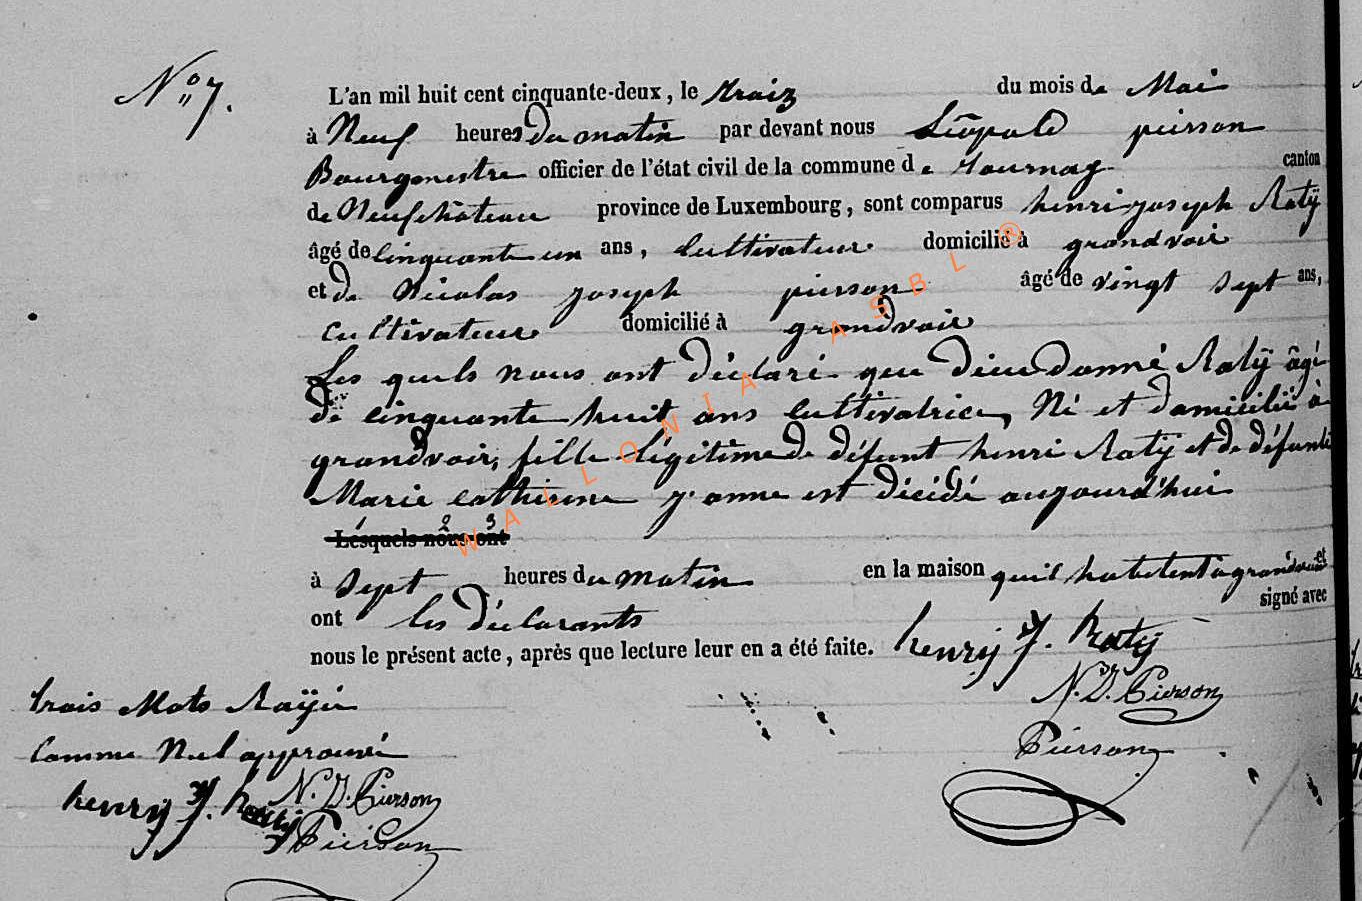 N° 7.
L'an mil huit cent cinquante-deux, le traiz du mois de Mai
à Neuf heures du matin par devant nous Léopold pierson
Bourgmestre officier de l'état civil de la commune de tournay canton
de Neufchâteau province de Luxembourg, sont comparus henri joseph Ratÿ
âgé de cinquante un ans, Cultivateur domicilié à grandvoir
et de Nicolas joseph pierson âgé de vingt sept ans,
cultivateur domicilié à grandvoir
Les quels nous ont déclaré que dieudonné Ratÿ âgé
de cinquante huit ans cultivatrice, Né et domicilié à
grandvoir, fille légitime de défunt henri Ratÿ et de défunte
Marie cathienne j. anne est décédé aujourd'hui
Lesquels nous ont
2 3
à sept heures du matin en la maison qu'il habitent à grandvoir et
ont les déclarants signé avec
nous le présent acte, après que lecture leur en a été faite. henry J. Raty
N. J. Pierson
Pierson
trois Mots Raÿé
comme Nul approuvé
henry J. Raty N. J. Pierson
Pierson
WALLONIA ASBL ®